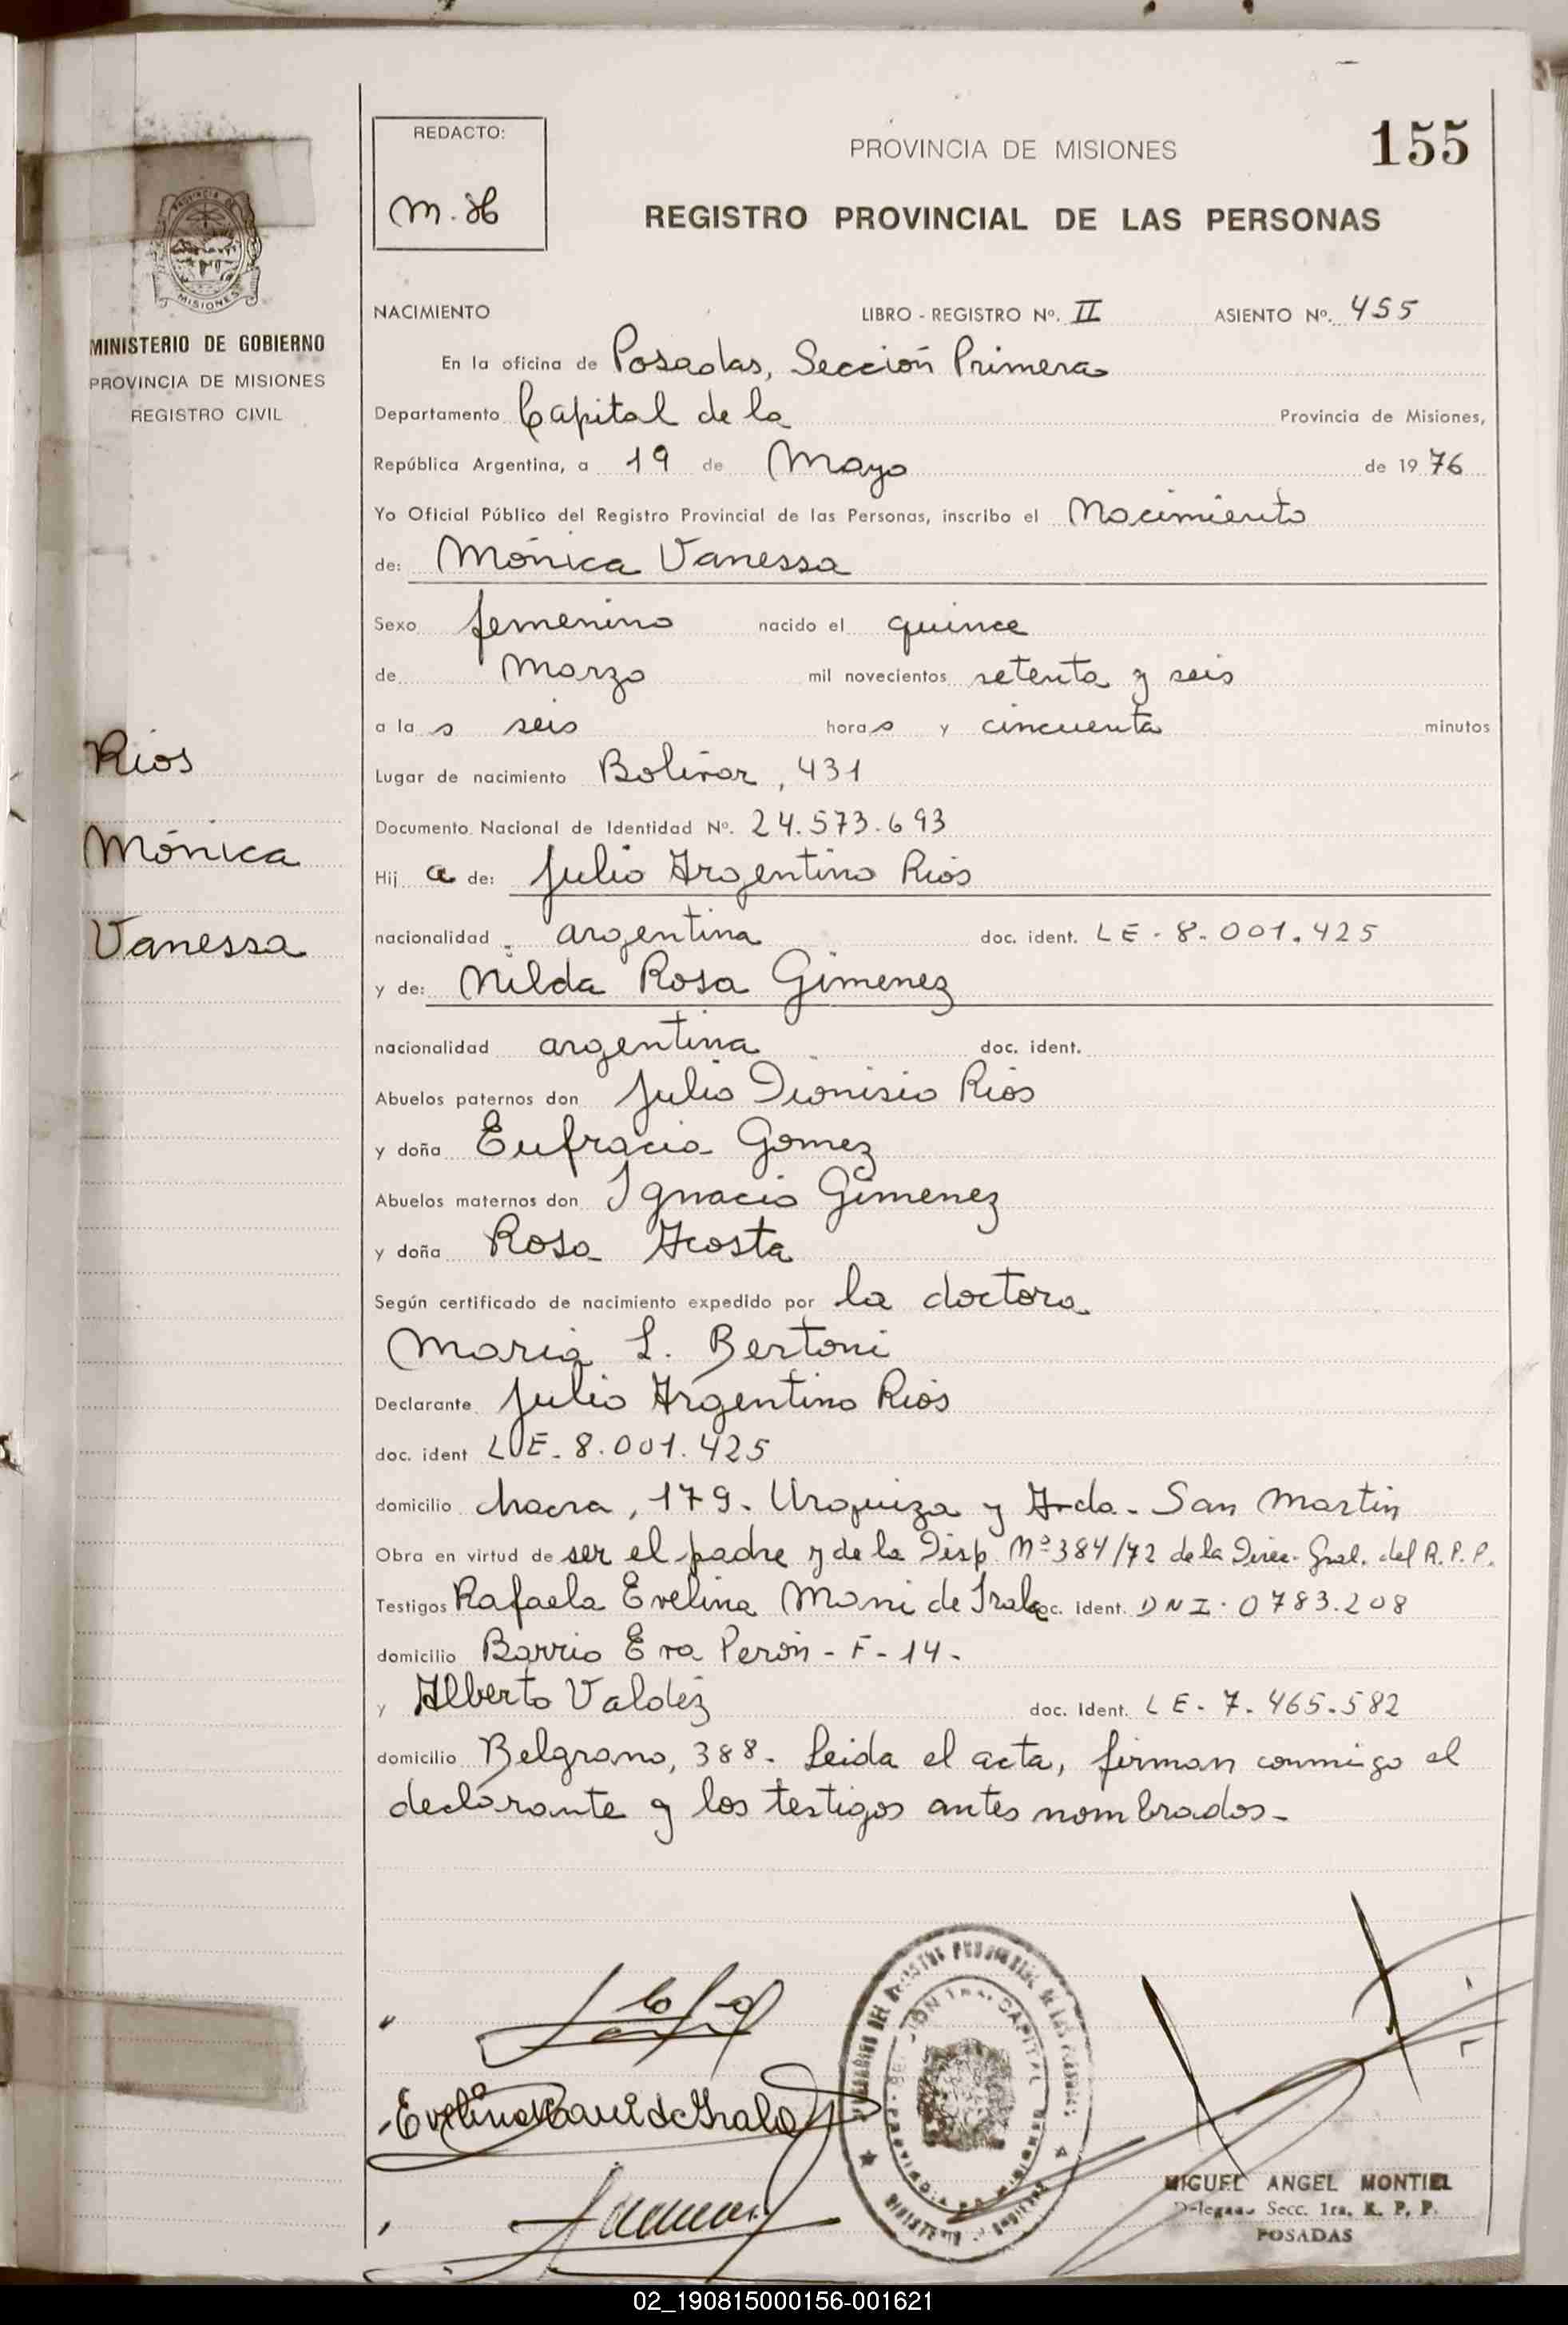 REDACTO:
PROVINCIA DE MISIONES
155
REGISTRO PROVINCIAL DE LAS PERSONAS
PROVINCIA DE
MISIONES
MINISTERIO DE GOBIERNO
PROVINCIA DE MISIONES
REGISTRO CIVIL
NACIMIENTO LIBRO - REGISTRO Nº. II ASIENTO Nº. 455
En la oficina de Posadas, Sección Primera
Departamento Capital de la Provincia de Misiones,
República Argentina, a 19 de Mayo de 1976
Yo Oficial Público del Registro Provincial de las Personas, inscribo el Nacimiento
de: Mónica Vanessa
Sexo femenino nacido el quince
de Marzo mil novecientos setenta y seis
a la s seis hora s y cincuenta minutos
Lugar de nacimiento Bolívar, 431
Documento Nacional de Identidad Nº. 24.573.693
Hij a de: Julio Argentino Ríos
nacionalidad argentina doc. ident. LE-8.001.425
y de: Nilda Rosa Gimenez
nacionalidad argentina doc. ident.
Abuelos paternos don Julio Dionisio Ríos
y doña Eufracia Gomez
Abuelos maternos don Ignacio Gimenez
y doña Rosa Acosta
Según certificado de nacimiento expedido por la doctora
Maria L. Bertoni
Declarante Julio Argentino Ríos
doc. ident LE-8.001.425
domicilio chacra, 179- Urquiza y Avda- San Martin
Obra en virtud de ser el padre y de la Disp. Nº384/72 de la Direc. Gral. del R.P.P.
Testigos Rafaela Evelina de doc. ident. DNI. 0783.208
domicilio Barrio Eva Perón - F-14-
y Alberto Valdéz doc. Ident. LE-7.465.582
domicilio Belgrano, 388- Leida el acta, firman conmigo el
declarante y los testigos antes nombrados-
Ríos
Mónica
Vanessa
MIGUEL ANGEL MONTIEL
Secc. 1ra, R. P. P.
POSADAS
02_190815000156-001621